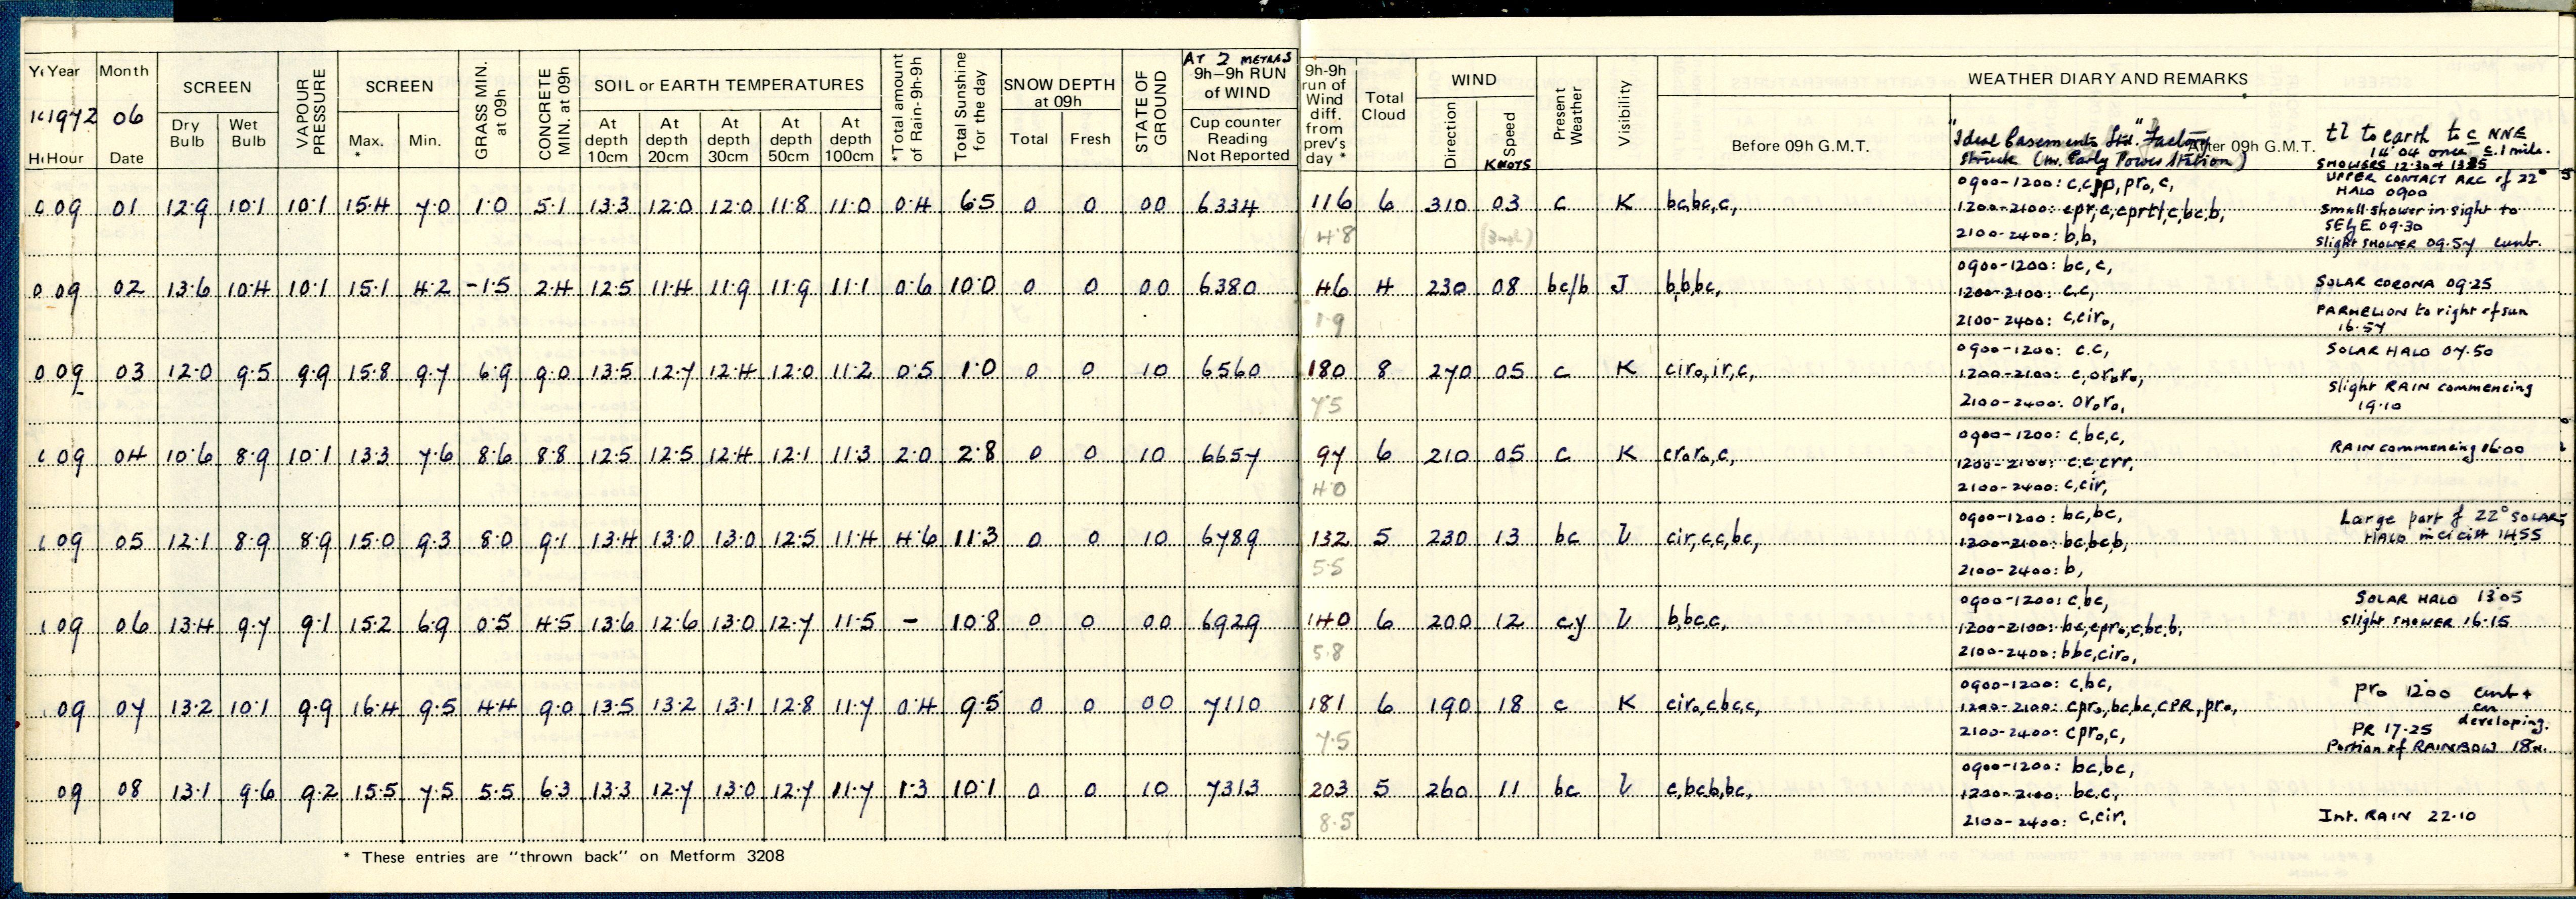 Year Month SCREEN VAPOUR PRESSURE SCREEN GRASS MIN. at 09h CONCRETE MIN. at 09h SOIL or EARTH TEMPERATURES *Total amount of Rain-9h-9h Total Sunshine for the day SNOW DEPTH at 09h STATE OF GROUND AT 2 METRES 9h-9h RUN of WIND 9h-9h run of Wind diff. from prev's day * Total Cloud WIND Present Weather Visibility WEATHER DIARY AND REMARKS
1972 06 Dry Bulb Wet Bulb Max. * Min. At depth 10cm At depth 20cm At depth 30cm At depth 50cm At depth 100cm Total Fresh Cup counter Reading Not Reported Direction Speed KNOTS Before 09h G.M.T. After 09h G.M.T.
Hour Date
"Ideal Casements Ltd." Factory tl to earth to c NNE
struck (nr. Earley Power Station) 14.04 once c.1 mile.
SHOWERS 12.30 & 1325
UPPER CONTACT ARC of 22°
HALO 0900
09 01 12.9 10.1 10.1 15.4 7.0 1.0 5.1 13.3 12.0 12.0 11.8 11.0 0.4 6.5 0 0 00 6334 116 6 310 03 c K bc,bc,c, 0900-1200: c,cpr,pro,c,
4.8 (3mph) 1200-2100: cpr,c,cprtl,c,bc,b, Small shower in sight to
SE'ly E 09.30
2100-2400: b,b, slight SHOWER 09.57 cunb.
0900-1200: bc,c,
09 02 13.6 10.4 10.1 15.1 4.2 -1.5 2.4 12.5 11.4 11.9 11.9 11.1 0.6 10.0 0 0 00 6380 46 4 230 08 bc/b J b,b,bc, 1200-2100: c,c, SOLAR CORONA 09.25
1.9 2100-2400: c,ciro, PARHELION to right of sun
16.57
0900-1200: c,c, SOLAR HALO 07.50
09 03 12.0 9.5 9.9 15.8 9.7 6.9 9.0 13.5 12.7 12.4 12.0 11.2 0.5 1.0 0 0 10 6560 180 8 270 05 c K ciro,ir,c, 1200-2100: c,oroo,
7.5 2100-2400: ororo, slight RAIN commencing
19.10
0900-1200: c,bc,c,
09 04 10.6 8.9 10.1 13.3 7.6 8.6 8.8 12.5 12.5 12.4 12.1 11.3 2.0 2.8 0 0 10 6657 97 6 210 05 c K croro,c, 1200-2100: c,c,crr, RAIN commencing 16.00
4.0 2100-2400: c,cir,
0900-1200: bc,bc, Large part of 22° SOLAR
09 05 12.1 8.9 8.9 15.0 9.3 8.0 9.1 13.4 13.0 13.0 12.5 11.4 4.6 11.3 0 0 10 6789 132 5 230 13 bc L cir,c,c,bc, 1200-2100: bc,bc,b, HALO in ci cist 1455
5.5 2100-2400: b,
0900-1200: c,bc, SOLAR HALO 13.05
09 06 13.4 9.7 9.1 15.2 6.9 0.5 4.5 13.6 12.6 13.0 12.7 11.5 - 10.8 0 0 00 6929 140 6 200 12 cy L b,bc,c, 1200-2100: bc,cpro,c,bc,b, slight SHOWER 16.15
5.8 2100-2400: bbc,ciro,
0900-1200: c,bc, pro 1200 cunb +
09 07 13.2 10.1 9.9 16.4 9.5 4.4 9.0 13.5 13.2 13.1 12.8 11.7 0.4 9.5 0 0 00 7110 181 6 190 18 c K ciro,c,bc,c, 1200-2100: cpro,bc,bc,CPR,pro, cu developing.
7.5 2100-2400: cpro,c, PR 17.25
Portion of RAINBOW
0900-1200: bc,bc,
09 08 13.1 9.6 9.2 15.5 7.5 5.5 6.3 13.3 12.7 13.0 12.7 11.7 1.3 10.1 0 0 10 7313 203 5 260 11 bc L c,bc,b,bc, 1200-2100: bc,c,
8.5 2100-2400: c,cir, Int. RAIN 22.10
* These entries are "thrown back" on Metform 3208